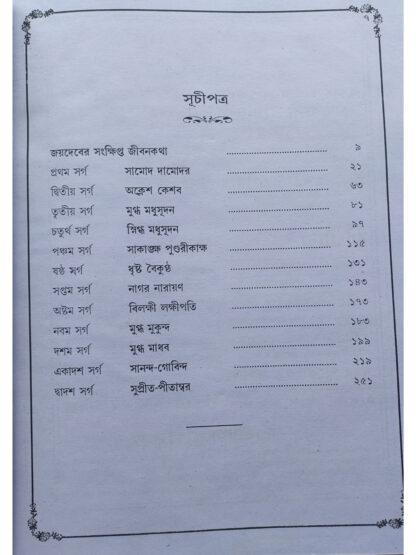 ৭
সূচীপত্র
জয়দেবের সংক্ষিপ্ত জীবনকথা ........................................ ৯
প্রথম সর্গ সামোদ দামোদর ........................................ ২১
দ্বিতীয় সর্গ অক্লেশ কেশব ........................................ ৬৩
তৃতীয় সর্গ মুগ্ধ মধুসূদন ........................................ ৮১
চতুর্থ সর্গ স্নিগ্ধ মধুসূদন ........................................ ৯৭
পঞ্চম সর্গ সাকাঙ্ক্ষ পুণ্ডরীকাক্ষ ........................................ ১১৫
ষষ্ঠ সর্গ ধৃষ্ট বৈকুণ্ঠ ........................................ ১৩১
সপ্তম সর্গ নাগর নারায়ণ ........................................ ১৪৩
অষ্টম সর্গ বিলক্ষী লক্ষীপতি ........................................ ১৭৩
নবম সর্গ মুগ্ধ মুকুন্দ ........................................ ১৮৩
দশম সর্গ মুগ্ধ মাধব ........................................ ১৯৯
একাদশ সর্গ সানন্দ-গোবিন্দ ........................................ ২১৯
দ্বাদশ সর্গ সুপ্রীত-পীতাম্বর ........................................ ২৫১